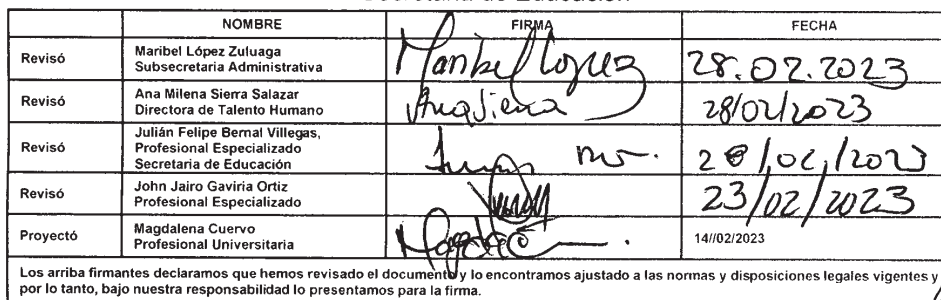 Secretaría de Educación
NOMBRE FIRMA FECHA
Revisó Maribel López Zuluaga
Subsecretaria Administrativa Maribel López 28.02.2023
Revisó Ana Milena Sierra Salazar
Directora de Talento Humano Ana Sierra 28/02/2023
Revisó Julián Felipe Bernal Villegas,
Profesional Especializado
Secretaria de Educación
Revisó John Jairo Gaviria Ortiz
Profesional Especializado 23/02/2023
Proyectó Magdalena Cuervo
Profesional Universitaria 14//02/2023
Los arriba firmantes declaramos que hemos revisado el documento y lo encontramos ajustado a las normas y disposiciones legales vigentes y
por lo tanto, bajo nuestra responsabilidad lo presentamos para la firma.